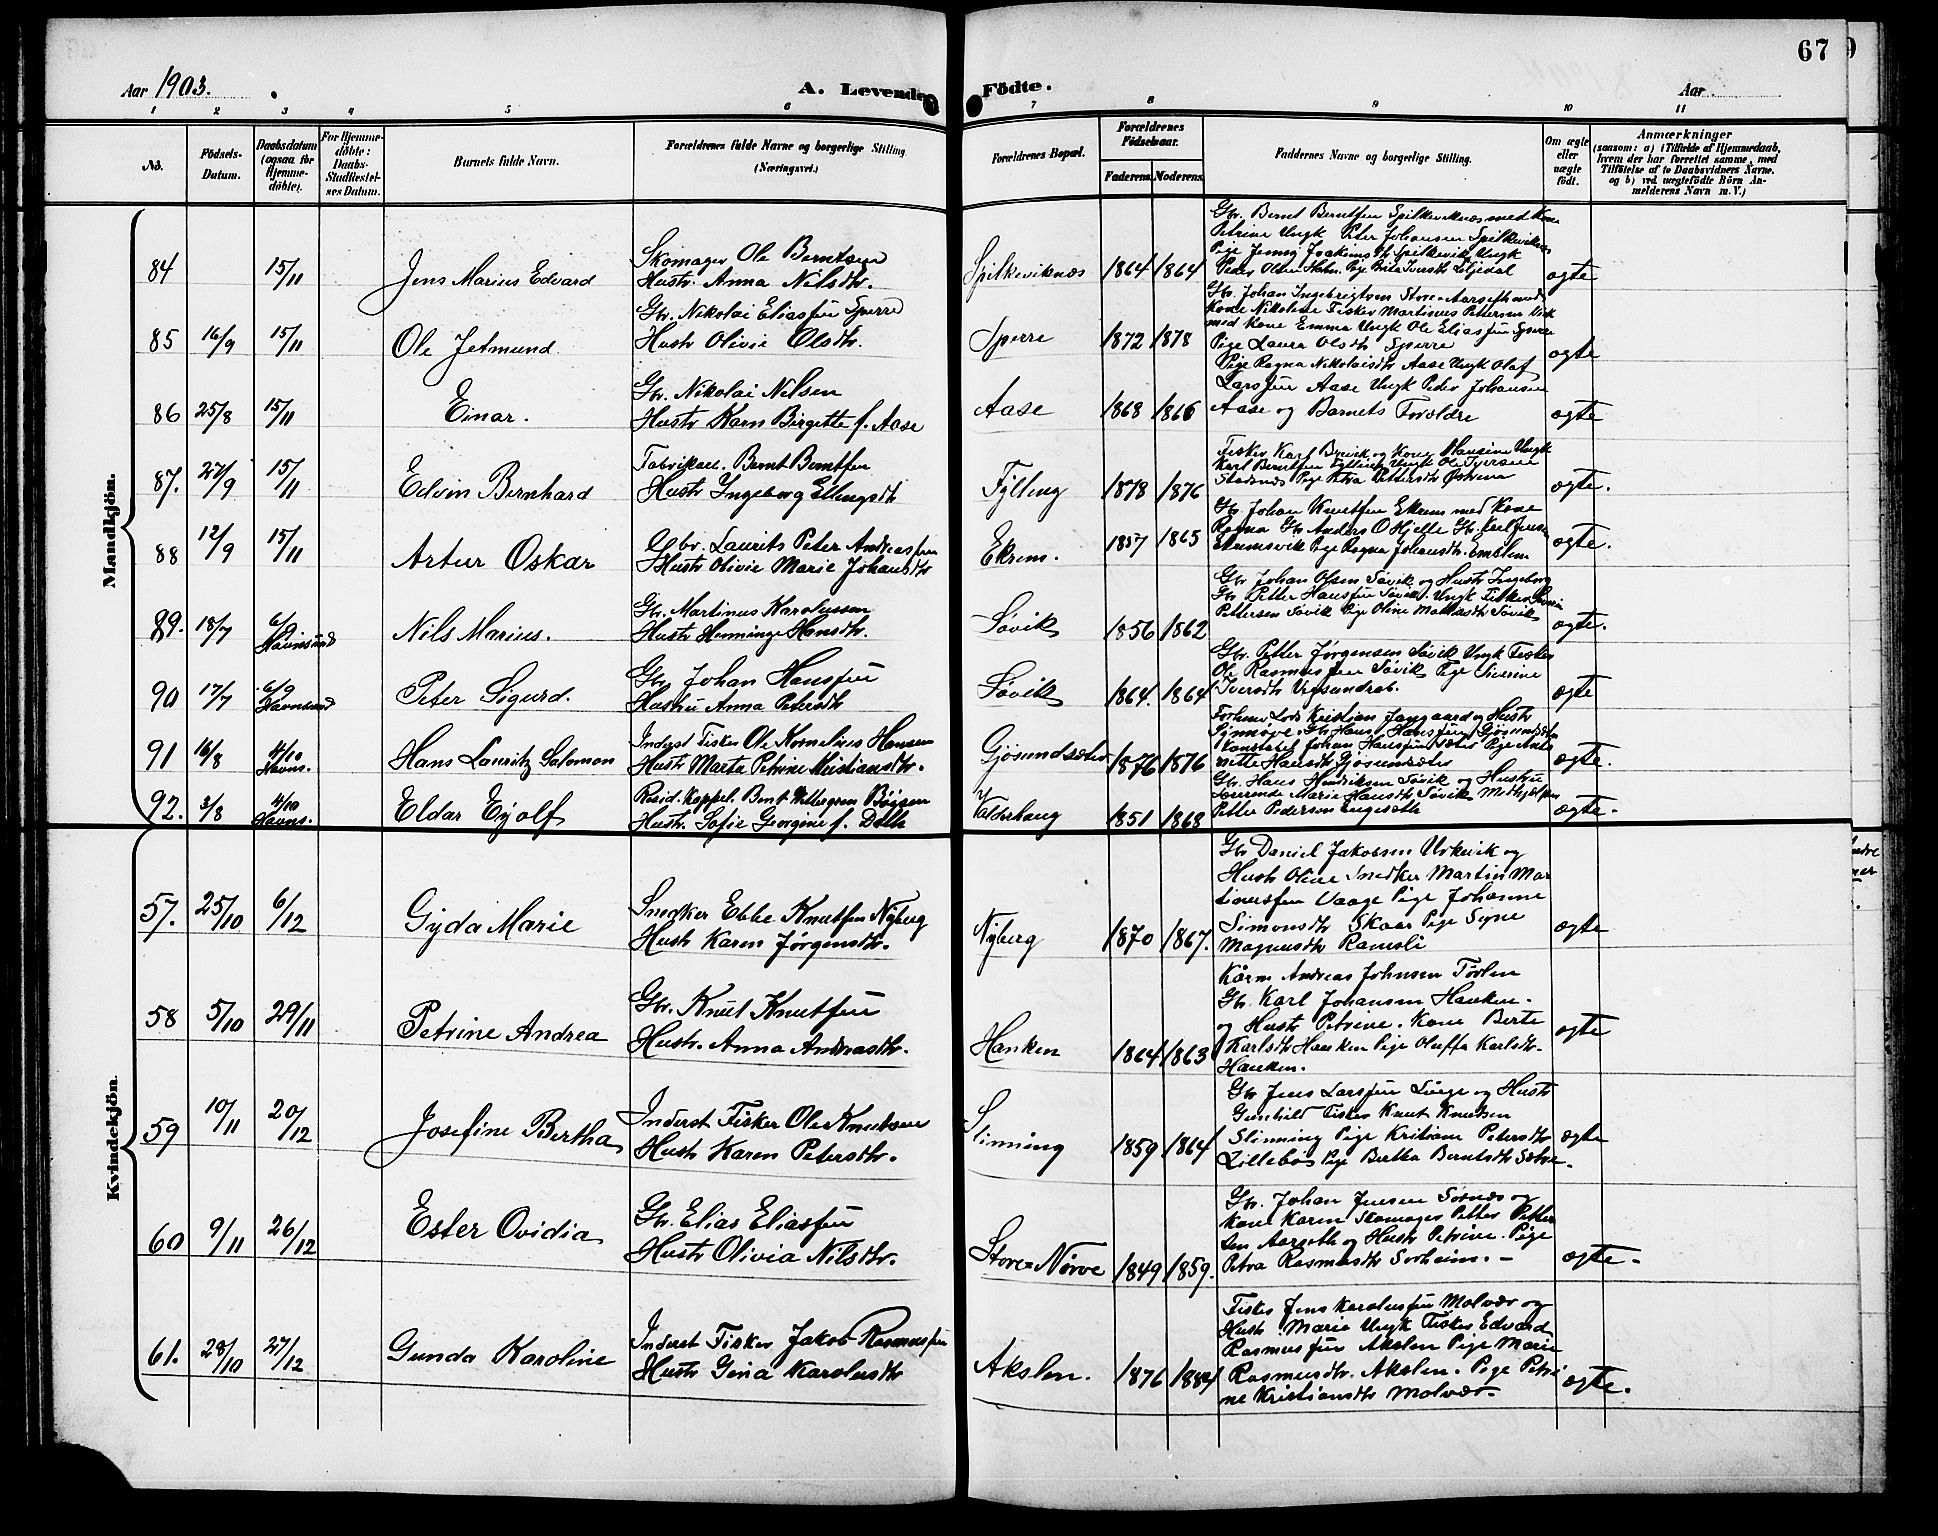 67
Aar 1903.
A. Levende Födte.
Aar
1 2 3 4 5 6 7 8 9 10 11
No.
Födsels-Datum.
Daabsdatum (ogsaa för Hjemme-döbte).
For Hjemme-döbte: Daabs-Stadfæstel-ses Datum.
Barnets fulde Navn.
Forældrenes fulde Navne og borgerlige Stilling (Næringsvei.)
Forældrenes Bopæl.
Forældrenes Födselsaar.
Faderens. Moderens.
Faddernes Navne og borgerlige Stilling.
Om ægte eller uægte födt.
Anmærkninger
(saasom: a) i Tilfælde af Hjemmedaab,
hvem der har forrettet samme, med
Tilföielse af to Daabsvidners Navne.
og b) ved uægtefödte Börn An-
melderens Navn m. V.)
Mandkjön.
84 15/11 Jens Marius Edvard
Skomager Ole Berntsen
Hustr. Anna Nilsdtr.
Spilkeviknæs 1864 1864
Gbr. Bernt Berntsen Spilkeviknæs med Kone
Petrine Ungk Peter Johansen Spilkeviknes
Pige Jenny Joakimsdtr Spilkevik Ungk
ægte
85 16/9 15/11 Ole Jetmund
Gbr. Nikolai Eliassen Sperre
Hustr Olivie Olsdtr.
Sperre 1872 1878
Gbr. Johan Ingebrigtsen Store-Aarseth med
Kone Nikoline Fisker Martinus Pettersen
med Kone Emma Ungk Ole Eliassen Sperre
Pige Laura Olsdtr Sperre
ægte
86 25/8 15/11 Einar.
Gbr. Nikolai Nilsen
Hustr Karn Birgitte f. Aase
Aase 1868 1866
Pige Ragna Nikolaisdtr Aase Ungk Olaf
Larssen Aase Ungk Peder Johansen
Aase og Barnets Forældre
ægte
87. 27/9 15/11 Edvin Bernhard
Fabrikarb. Bernt Berntsen
Hustr Ingeborg Ellingsdtr
Fylling 1878 1876
Fisker Karl Brevik og Kone Hansine Ungk
Karl Berntsen Fylling Ungk Ole Syversen
Stadsnes Pige Petra Pettersdtr
ægte.
88 12/9 15/11 Artur Oskar
Gbr. Laurits Peter Andreassen
Hustr Olivie Marie Johansdtr
Ekrem. 1857 1865
Gbr. Johan Knutsen Ekrem med Kone
Ragna Gbr. Anders O Hjelle Gbr. Karl Jensen
Ekremsvik Pige Ragna Johansdtr. Emblem
ægte.
89. 18/7 6/9 Havnsund Nils Marius.
Gbr. Martinus Karolussen
Hustr Henninge Hansdtr.
Søvik 1856 1862
Gbr Johan Olsen Søvik og Hustr Ingeborg
Gbr Petter Hanssen Søvik. Ungk Fisker
Pettersen Søvik Pige Oline Søvik
ægte.
90 17/7 6/9 Havnsund Peter Sigurd.
Gbr. Johan Hanssen
Hustru Anna Petersdtr
Søvik 1864. 1864
Gbr. Petter Jørgensen Søvik Ungk Fisker
Ole Rasmussen Søvik Pige Sverine
Iversdtr
ægte
91 16/8 4/10 Havns. Hans Lauritz Salomon
Inderst Fisker Ole Kornelius Hansen
Hustr Marta Petrine Kristiansdtr.
Gjøsundsæter 1876 1876
Kristian Jangaard og Hustr
Synnøve. Gbr Hans Hanssen Gjøsundsæter
Konstabel Johan Hanssen Sæter Pige Ane-
nette Hansdtr Gjøsundsæter
ægte.
92. 3/8 4/10 Havns. Eldar Eyolf
Resid. Kappel. Bernt Wittergren Bøgsen
Hustr. Sofie Georgine f. Dahle
Valderhaug 1851 1868
Gbr. Hans Hendriksen Søvik og Hustru
Marie Hansdtr Søvik
Petter Pedersen Engeseth
ægte.
Kvindekjön.
57. 25/10 6/12 Gyda Marie
Snedker Ebbe Knutsen Nyberg
Hustr Karen Jørgensdtr.
Nyberg 1870 1867.
Gbr Daniel Jakobsen Urkevik og
Hustr Oline Snedker Martin Mar
tinussen Vaage Pige Johanne
Simonsdtr Skaar Pige Signe
Magnusdtr Ramsli
ægte
58 5/10 29/11 Petrine Andrea
Gbr. Knut Knutsen
Hustr. Anna Andreasdtr.
Hanken 1864 1863
Kårm Andreas Johnsen Tørlen
Gbr. Karl Johansen Hanken.
og Hustr Petrine. Kone Berte
Karlsdtr Hanken Pige Oluffa Karlsdtr.
Hanken.
ægte
59 10/11 20/12 Josefine Bertha
Inderst Fisker Ole Knutsen
Hustr Karen Petersdtr.
Slinning 1859 1864
Gbr Jens Larssen Linge og Hustr
Gunhild Fisker Knut Knutsen
Slinning Pige Kristiane Petersdtr
Lillebøs Pige Bertha Berntsdtr Sætre.
ægte
60 9/11 26/12 Ester Ovidia
Gbr. Elias Eliassen
Hustr Olivia Nilsdtr.
Store=Nørve 1849 1859.
Gbr. Johan Jensen Sosnæs og
Kone Karen Skomager Petter Petter
sen Aarseth og Hustr Petrine. Pige
Petra Rasmusdtr Sorheim. —
ægte.
61. 28/10 27/12 Gunda Karoline
Inderst Fisker Jakob Rasmussen
Hustr Gina Karolusdtr
Akslen. 1876 1884
Fisker Jens Karolussen Molvær og
Hustr. Marie Ungk Fisker Edvard
Rasmussen Akslen Pige Marie
Rasmusdtr. Akslen. Pige Petri
ne Kristiansdtr Molvær.
ægte.